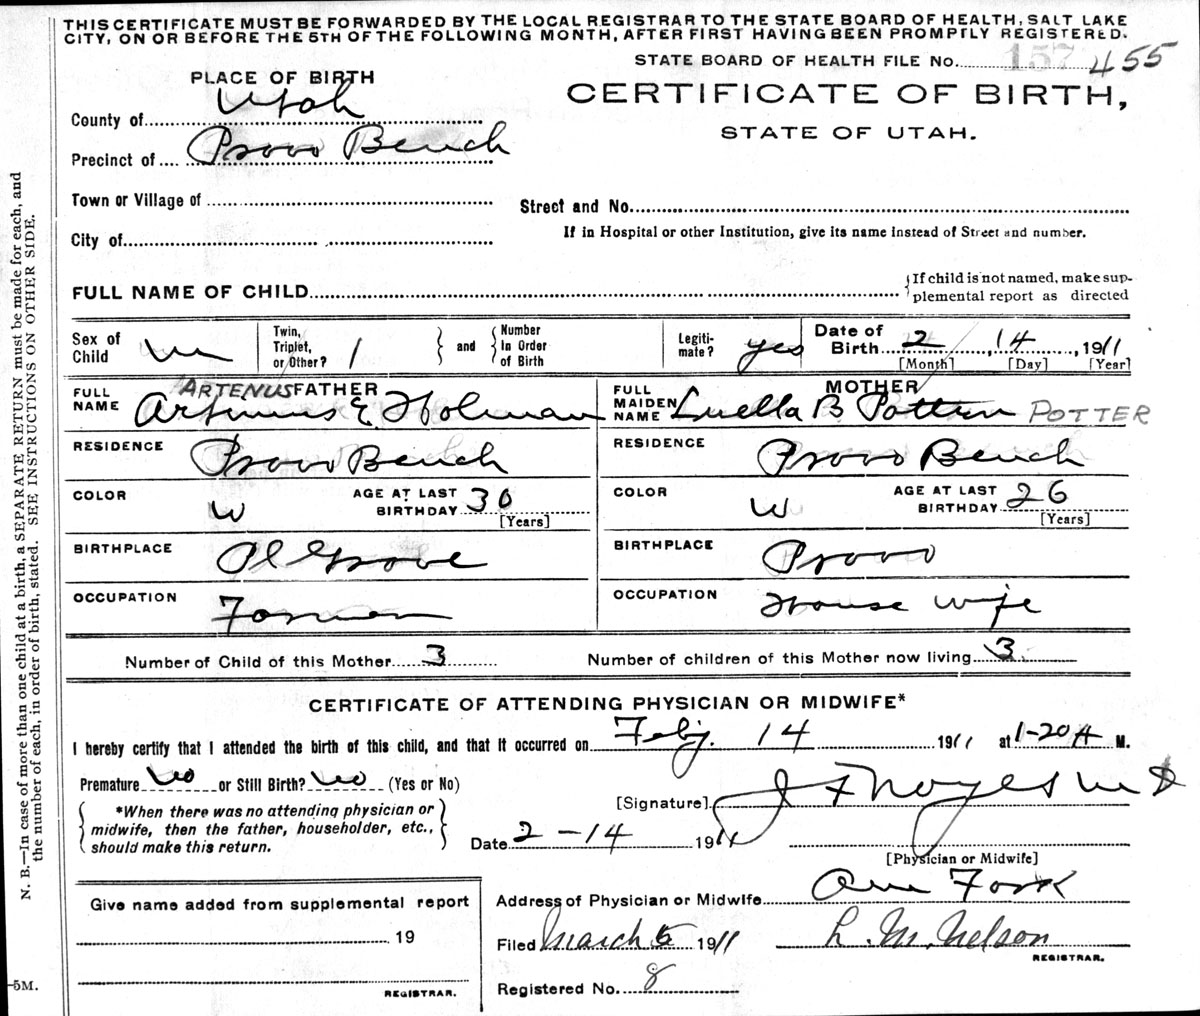 THIS CERTIFICATE MUST BE FORWARDED BY THE LOCAL REGISTRAR TO THE STATE BOARD OF HEALTH, SALT LAKE
CITY, ON OR BEFORE THE 5TH OF THE FOLLOWING MONTH, AFTER FIRST HAVING BEEN PROMPTLY REGISTERED.
STATE BOARD OF HEALTH FILE No. 157 455
PLACE OF BIRTH
CERTIFICATE OF BIRTH,
STATE OF UTAH.
County of Utah
Precinct of Provo Bench
Town or Village of
Street and No.
City of
If in Hospital or other Institution, give its name instead of Street and number.
FULL NAME OF CHILD
{If child is not named, make sup-
plemental report as directed
Sex of Child m
Twin, Triplet, or Other? 1
} and { Number In Order of Birth
Legiti-mate? yes
Date of Birth 2, 14, 1911
[Month] [Day] [Year]
ARTENUS FATHER
FULL NAME Artemus E Holman
RESIDENCE Provo Bench
COLOR W
AGE AT LAST BIRTHDAY 30
[Years]
BIRTHPLACE Pl Grove
OCCUPATION Farmer
MOTHER
FULL MAIDEN NAME Luella B Potter POTTER
RESIDENCE Provo Bench
COLOR W
AGE AT LAST BIRTHDAY 26
[Years]
BIRTHPLACE Provo
OCCUPATION House wife
Number of Child of this Mother 3
Number of children of this Mother now living 3
CERTIFICATE OF ATTENDING PHYSICIAN OR MIDWIFE*
I hereby certify that I attended the birth of this child, and that it occurred on Feby. 14 1911 at 1-20 A M.
Premature No or Still Birth? No (Yes or No)
{ *When there was no attending physician or
midwife, then the father, householder, etc.,
should make this return. }
[Signature] J F Noyes M D
Date 2-14 1911
[Physician or Midwife]
Address of Physician or Midwife Am Fork
Give name added from supplemental report
19
REGISTRAR.
Filed March 5 1911
L. M. Nelson
REGISTRAR.
Registered No. 8
N. B.—In case of more than one child at a birth, a SEPARATE RETURN must be made for each, and
the number of each, in order of birth, stated. SEE INSTRUCTIONS ON OTHER SIDE.
-5M.